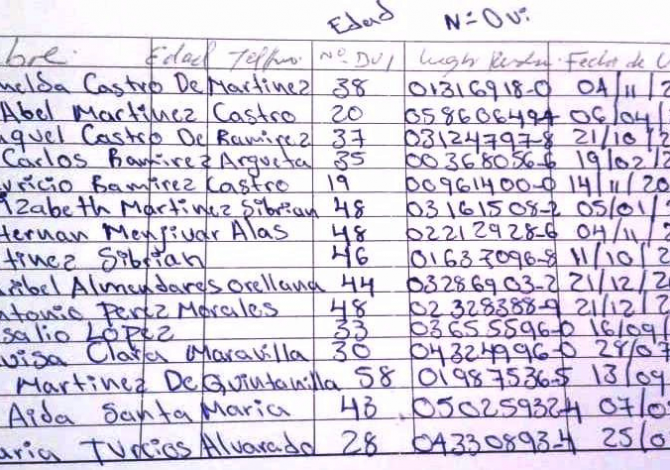 Edad Nº Dui
bre. Edad Teléfono. Nº DUI Lugar Fecha de
nelda Castro De Martinez 38 01316918-0 04/11/2
Abel Martinez Castro 20 058606494 06/04/
quel Castro De Ramirez 37 03124797-8 21/10/2
Carlos Ramirez Argueta 35 00368056-6 19/02/2
uricio Ramirez Castro 19 00961400-0 14/11/20
izabeth Martinez Sibrian 48 03161508-2 05/01/
Hernan Menjivar Alas 48 02212928-6 04/11/2
tinez Sibrian 46 01637096-8 11/10/2
ribel Almendares Orellana 44 03286903-2 21/12/2
ntonio Perez Morales 48 02328388-9 21/12/2
salio López 33 03655596-0 16/09/
uisa Clara Maravilla 30 04324996-0 28/07
Martinez De Quintanilla 58 01987536-5 13/09
Aida Santa Maria 43 05025932-4 07/0
aria Turcios Alvarado 28 04330893-4 25/0